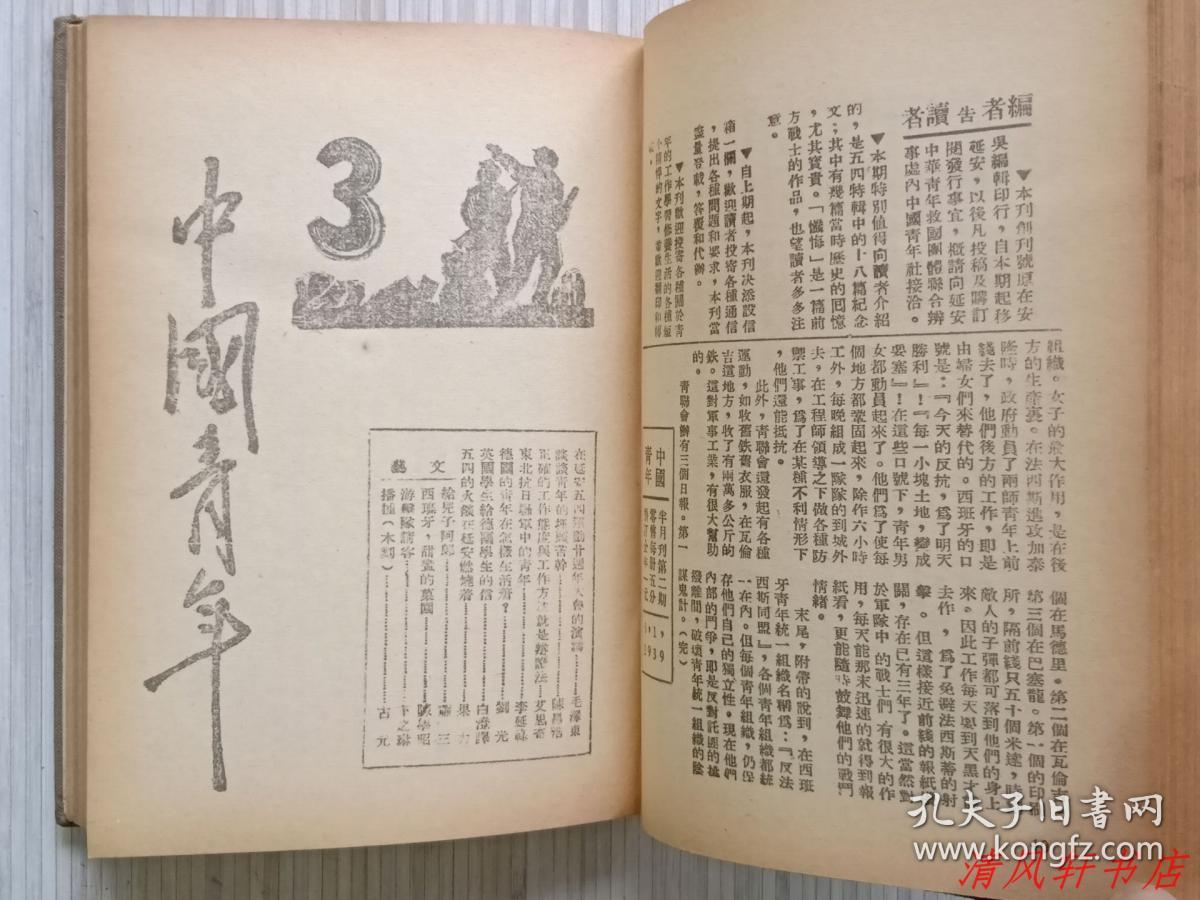 編者告讀者
▼本刊創刊號原在安
吳編輯印行，自本期起移
延安，以後凡投稿及購訂
閱發行事宜，概請向延安
中華青年救國團體聯合辦
事處內中國青年社接洽。
▼本期特別值得向讀者介紹
的，是五四特輯中的十八篇紀念
文；其中有幾篇當時歷史的回憶
，尤其寶貴。「懺悔」是一篇前
方戰士的作品，也望讀者多多注
意。
▼自上期起，本刊決添設信
箱一欄，歡迎讀者投寄各種通信
，提出各種問題和要求，本刊當
盡量登載，答覆和代辦。
▼本刊歡迎投寄各種關於青
年的工作學習修養生活的各種短
小精悍的文字，並歡迎翻印和轉
組織。女子的最大作用，是在後
方的生產裏。在法西斯進攻加泰
隆時，政府動員了兩師青年上前
綫去了，他們後方的工作，即是
由婦女們來替代的。西班牙的口
號是：『今天的反抗，爲了明天
勝利』！『每一小塊土地，變成
要塞』！在這些口號下，青年男
女都動員起來了。他們爲了使每
個地方都鞏固起來，除作六小時
工外，每晚組成一隊隊的到城外
去，在工程師領導之下做各種防
禦工事，爲了在某種不利情形下
，他們還能抵抗。
此外，青聯會還發起有各種
運動，如收舊鐵舊衣服，在瓦倫
吉這地方，收了有兩萬多公斤的
鐵。這對軍事工業，有很大幫助
的。
青聯會辦有三個日報。第一
個在馬德里。第二個在瓦倫吉
第三個在巴塞龍。第一個的印刷
所，隔前綫只五十個米達，時
敵人的子彈都可落到他們的身上
來。因此工作每天要到天黑才
去作，爲了免避法西斯蒂的射
擊。但這樣接近前綫的報紙
鬪，存在已有三年了。這當然對
於軍隊中的戰士們有很大的作
用，每天能那末迅速的就得到報
紙看，更能隨時鼓舞他們的戰鬥
情緒。
末尾，附帶的說到，在西班
牙青年統一組織名稱爲：『反法
西斯同盟』，各個青年組織都統
一在內。但每個青年組織，仍保
存他們自己的獨立性。現在他們
內部的鬥爭，即是反對託匪的挑
撥離間，破壞青年統一組織的陰
謀鬼計。（完）
中國青年
半月刊第二期
零售每冊五分
1939
3
中國青年
在延安五四運動廿週年大會的演講……毛澤東
談談青年的埋頭苦幹……陳昌浩
正確的工作態度與工作方法就是辯證法……艾思奇
東北抗日聯軍中的青年……李延祿
德國的青年在怎樣生活着？……劉光
英國學生給德國學生的信……白澄譯
五四的火燄在延安燃燒着……果力
文藝
給兒子阿郎……蕭三
西班牙，甜蜜的菓園……陳學昭
游擊隊請客……卞之琳
播種（木刻）……古元
孔夫子旧書网
www.kongfz.com
清风轩书店